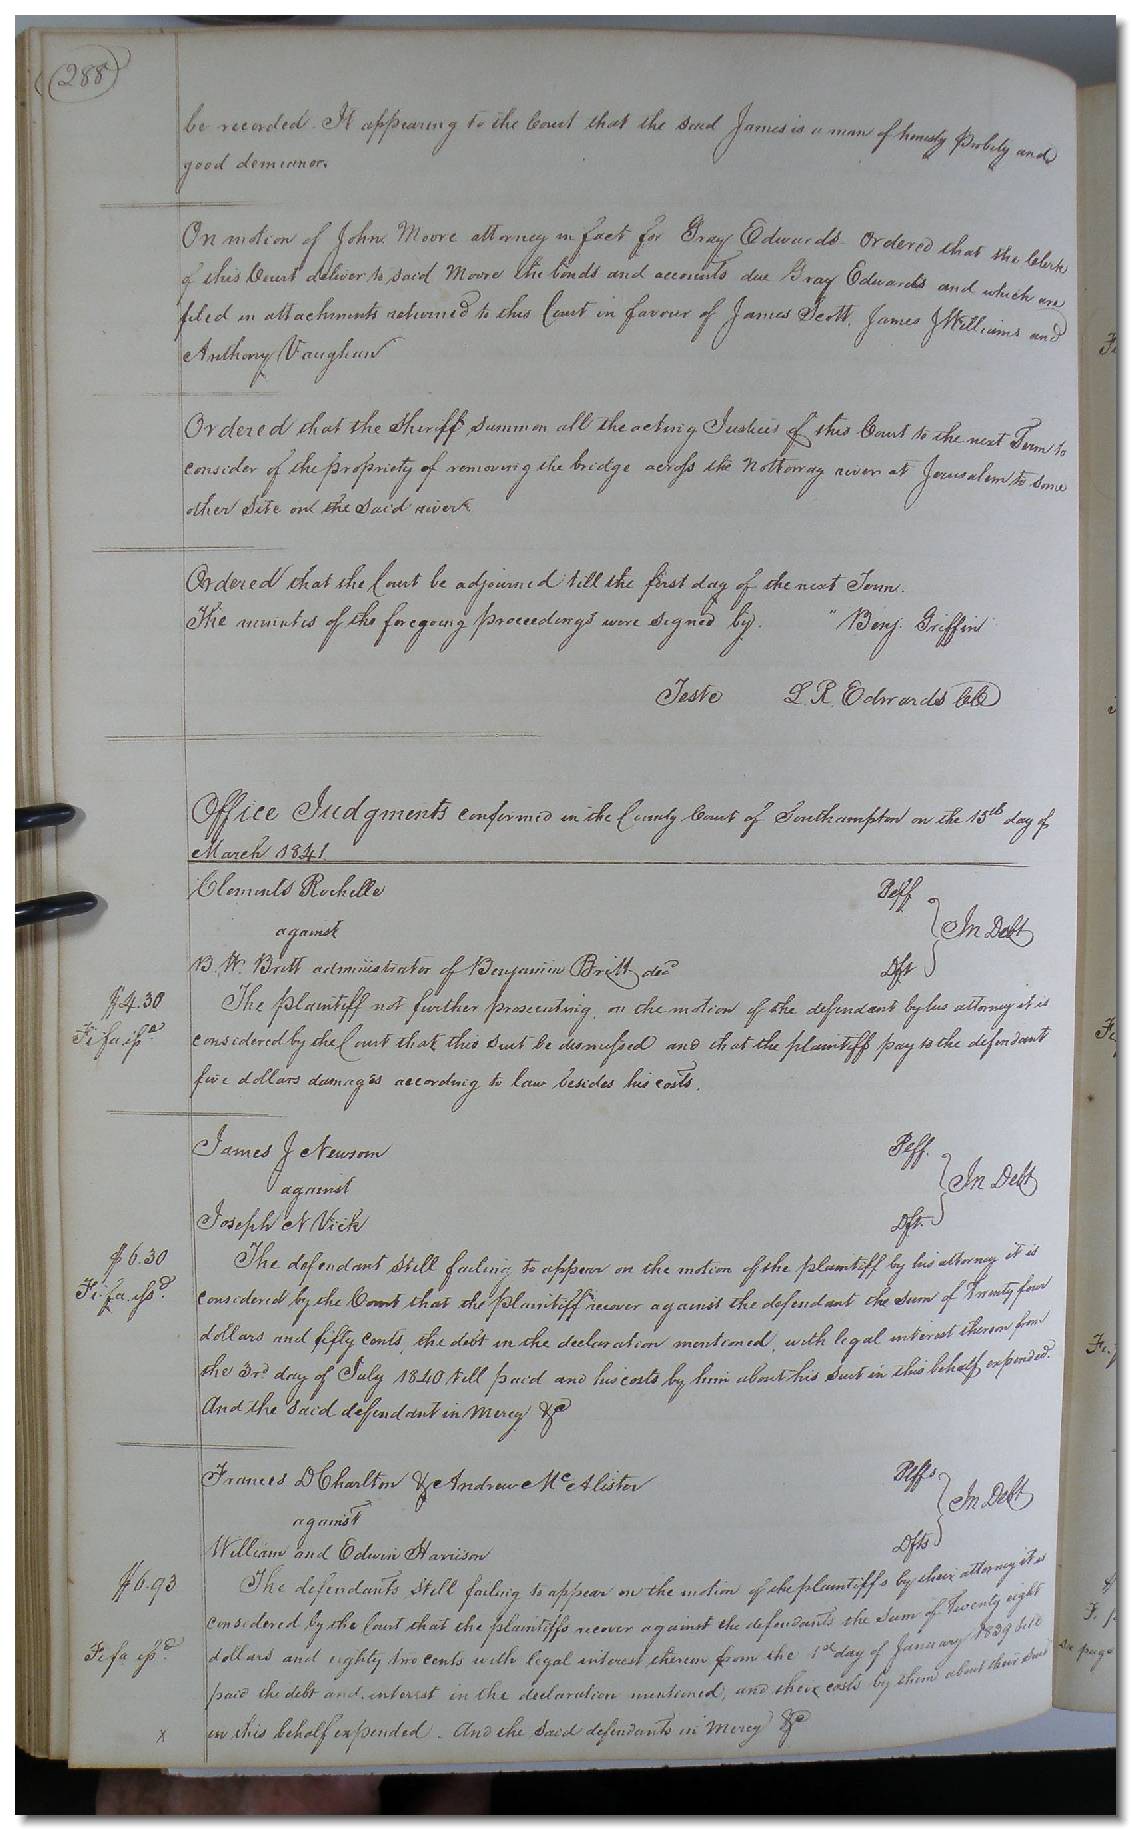 288
be recorded. It appearing to the Court that the said James is a man of honesty probity and
good demeanor.
On motion of John Moore attorney in fact for Gray Edwards ordered that the Clerk
of this Court deliver to said Moore the bonds and accounts due Gray Edwards and which are
filed in attachments returned to this Court in favour of James Scott, James J Williams and
Anthony Vaughan
Ordered that the Sheriff summon all the acting Justices of this Court to the next Term to
consider of the propriety of removing the bridge across the Nottoway river at Jerusalem to some
other site on the said river.
Ordered that the Court be adjourned till the first day of the next Term.
The minutes of the foregoing proceedings were signed by. " Benj. Griffin
Teste L. R. Edwards
Office Judgments confirmed in the County Court of Southampton on the 15th day of
March 1841
Clements Rochelle Peff
against In Debt
B. W. Britt administrator of Benjamin Britt decd Dft
$4.30 The plaintiff not further prosecuting, on the motion of the defendant by his attorney it is
Fi fa issd considered by the Court that this suit be dismissed and that the plaintiff pay to the defendant
five dollars damages according to law besides his costs.
James J Newsom Peff.
against In Debt
Joseph N Vick Dft.
$6.30 The defendant still failing to appear on the motion of the plaintiff by his attorney it is
Fi. fa. issd. considered by the Court that the plaintiff recover against the defendant the sum of Twenty four
dollars and fifty cents, the debt in the declaration mentioned, with legal interest thereon from
the 3rd day of July 1840 till paid and his costs by him about his suit in this behalf expended.
And the said defendant in mercy &c
Frances D Charlton & Andrew McAlister Peffs
against In Debt
William and Edwin Harrison Dfts
$6.93 The defendants still failing to appear on the motion of the plaintiffs by their attorney it is
considered by the Court that the plaintiffs recover against the defendants the sum of Twenty eight
Fi fa issd. dollars and eighty two cents with legal interest thereon from the 1st day of January 1839 till
paid the debt and interest in the declaration mentioned, and their costs by them about their suit
x in this behalf expended. And the said defendants in mercy &c